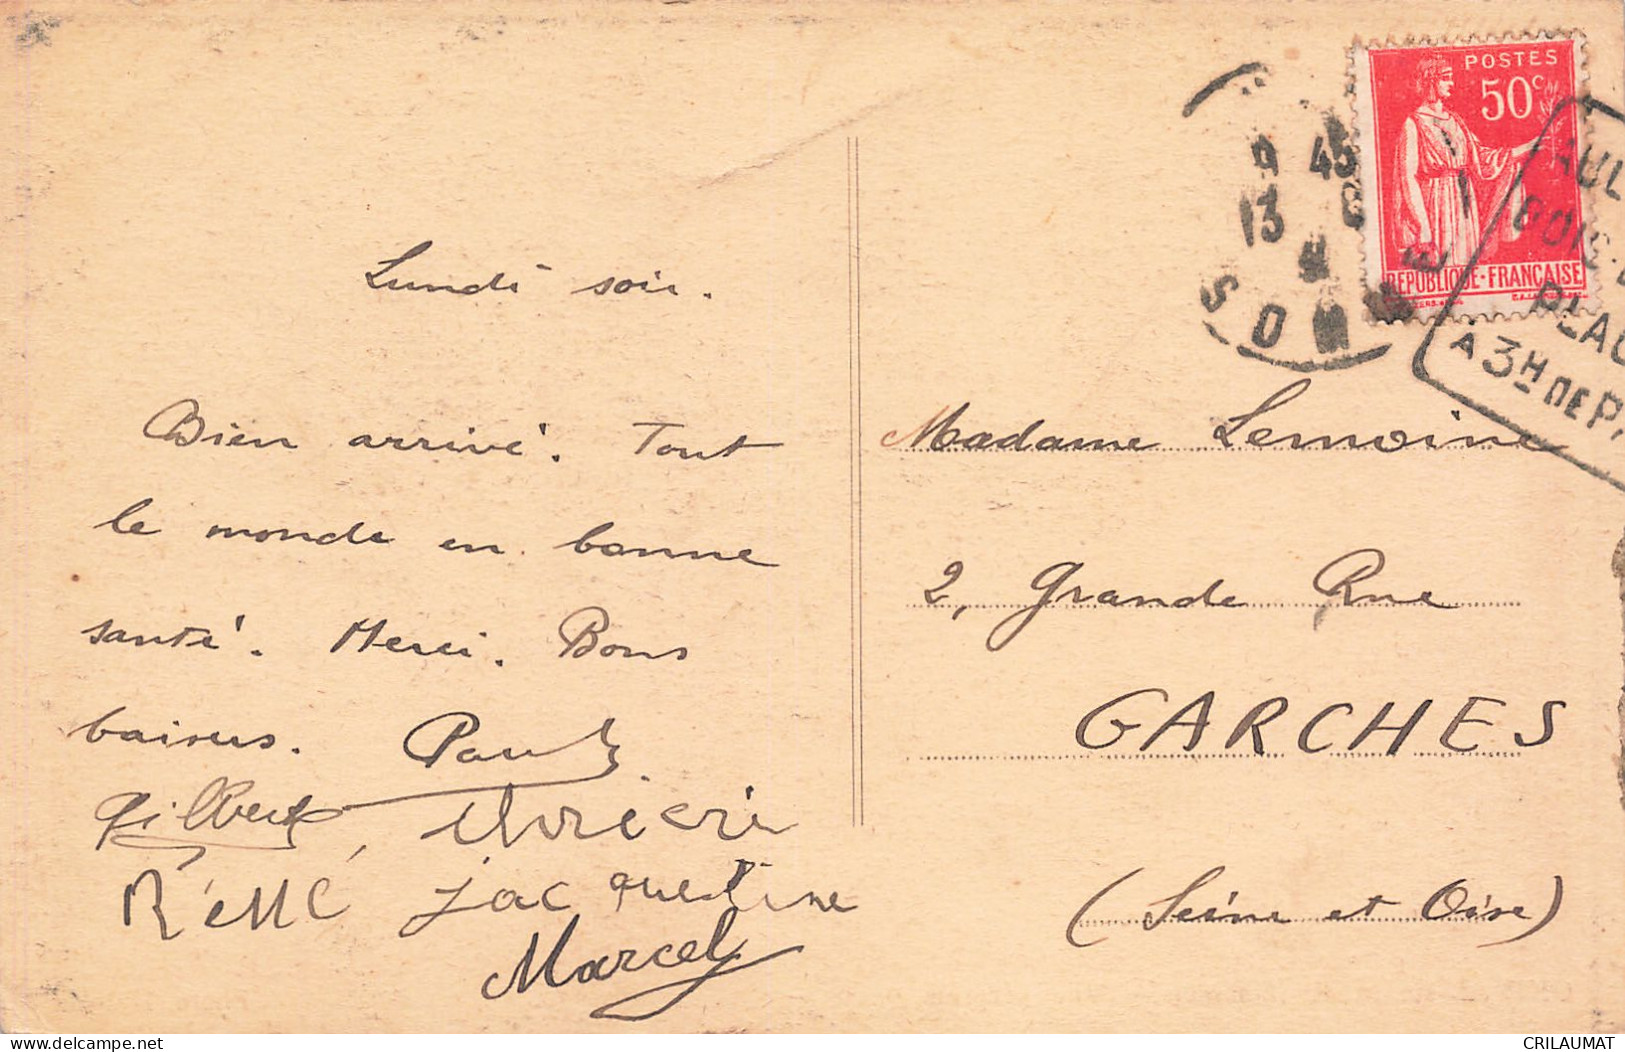 Lundi soir.
Bien arrivé. Tout
le monde en bonne
santé. Merci. Bons
baisers. Paul.
Gilbert,
Jacqueline
Marcel
POSTES
50c
REPUBLIQUE·FRANÇAISE
9 45
13
SOM
AUL
BOIS
PLAG
A 3H DE PA
Madame Lemoine
2, Grande Rue
GARCHES
(Seine et Oise)
delcampe.net
CRILAUMAT